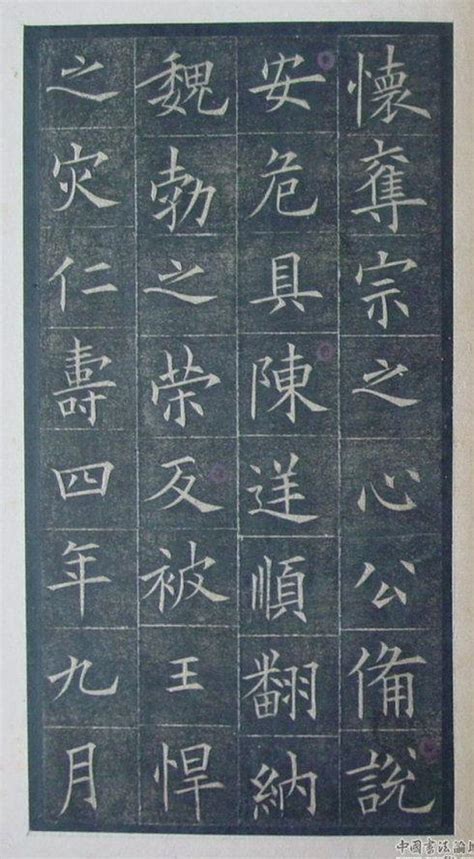 懷奪宗之心公俻説
安危具陳逆順翻納
魏勃之榮反被王悍
之灾仁壽四年九月
中國書法論